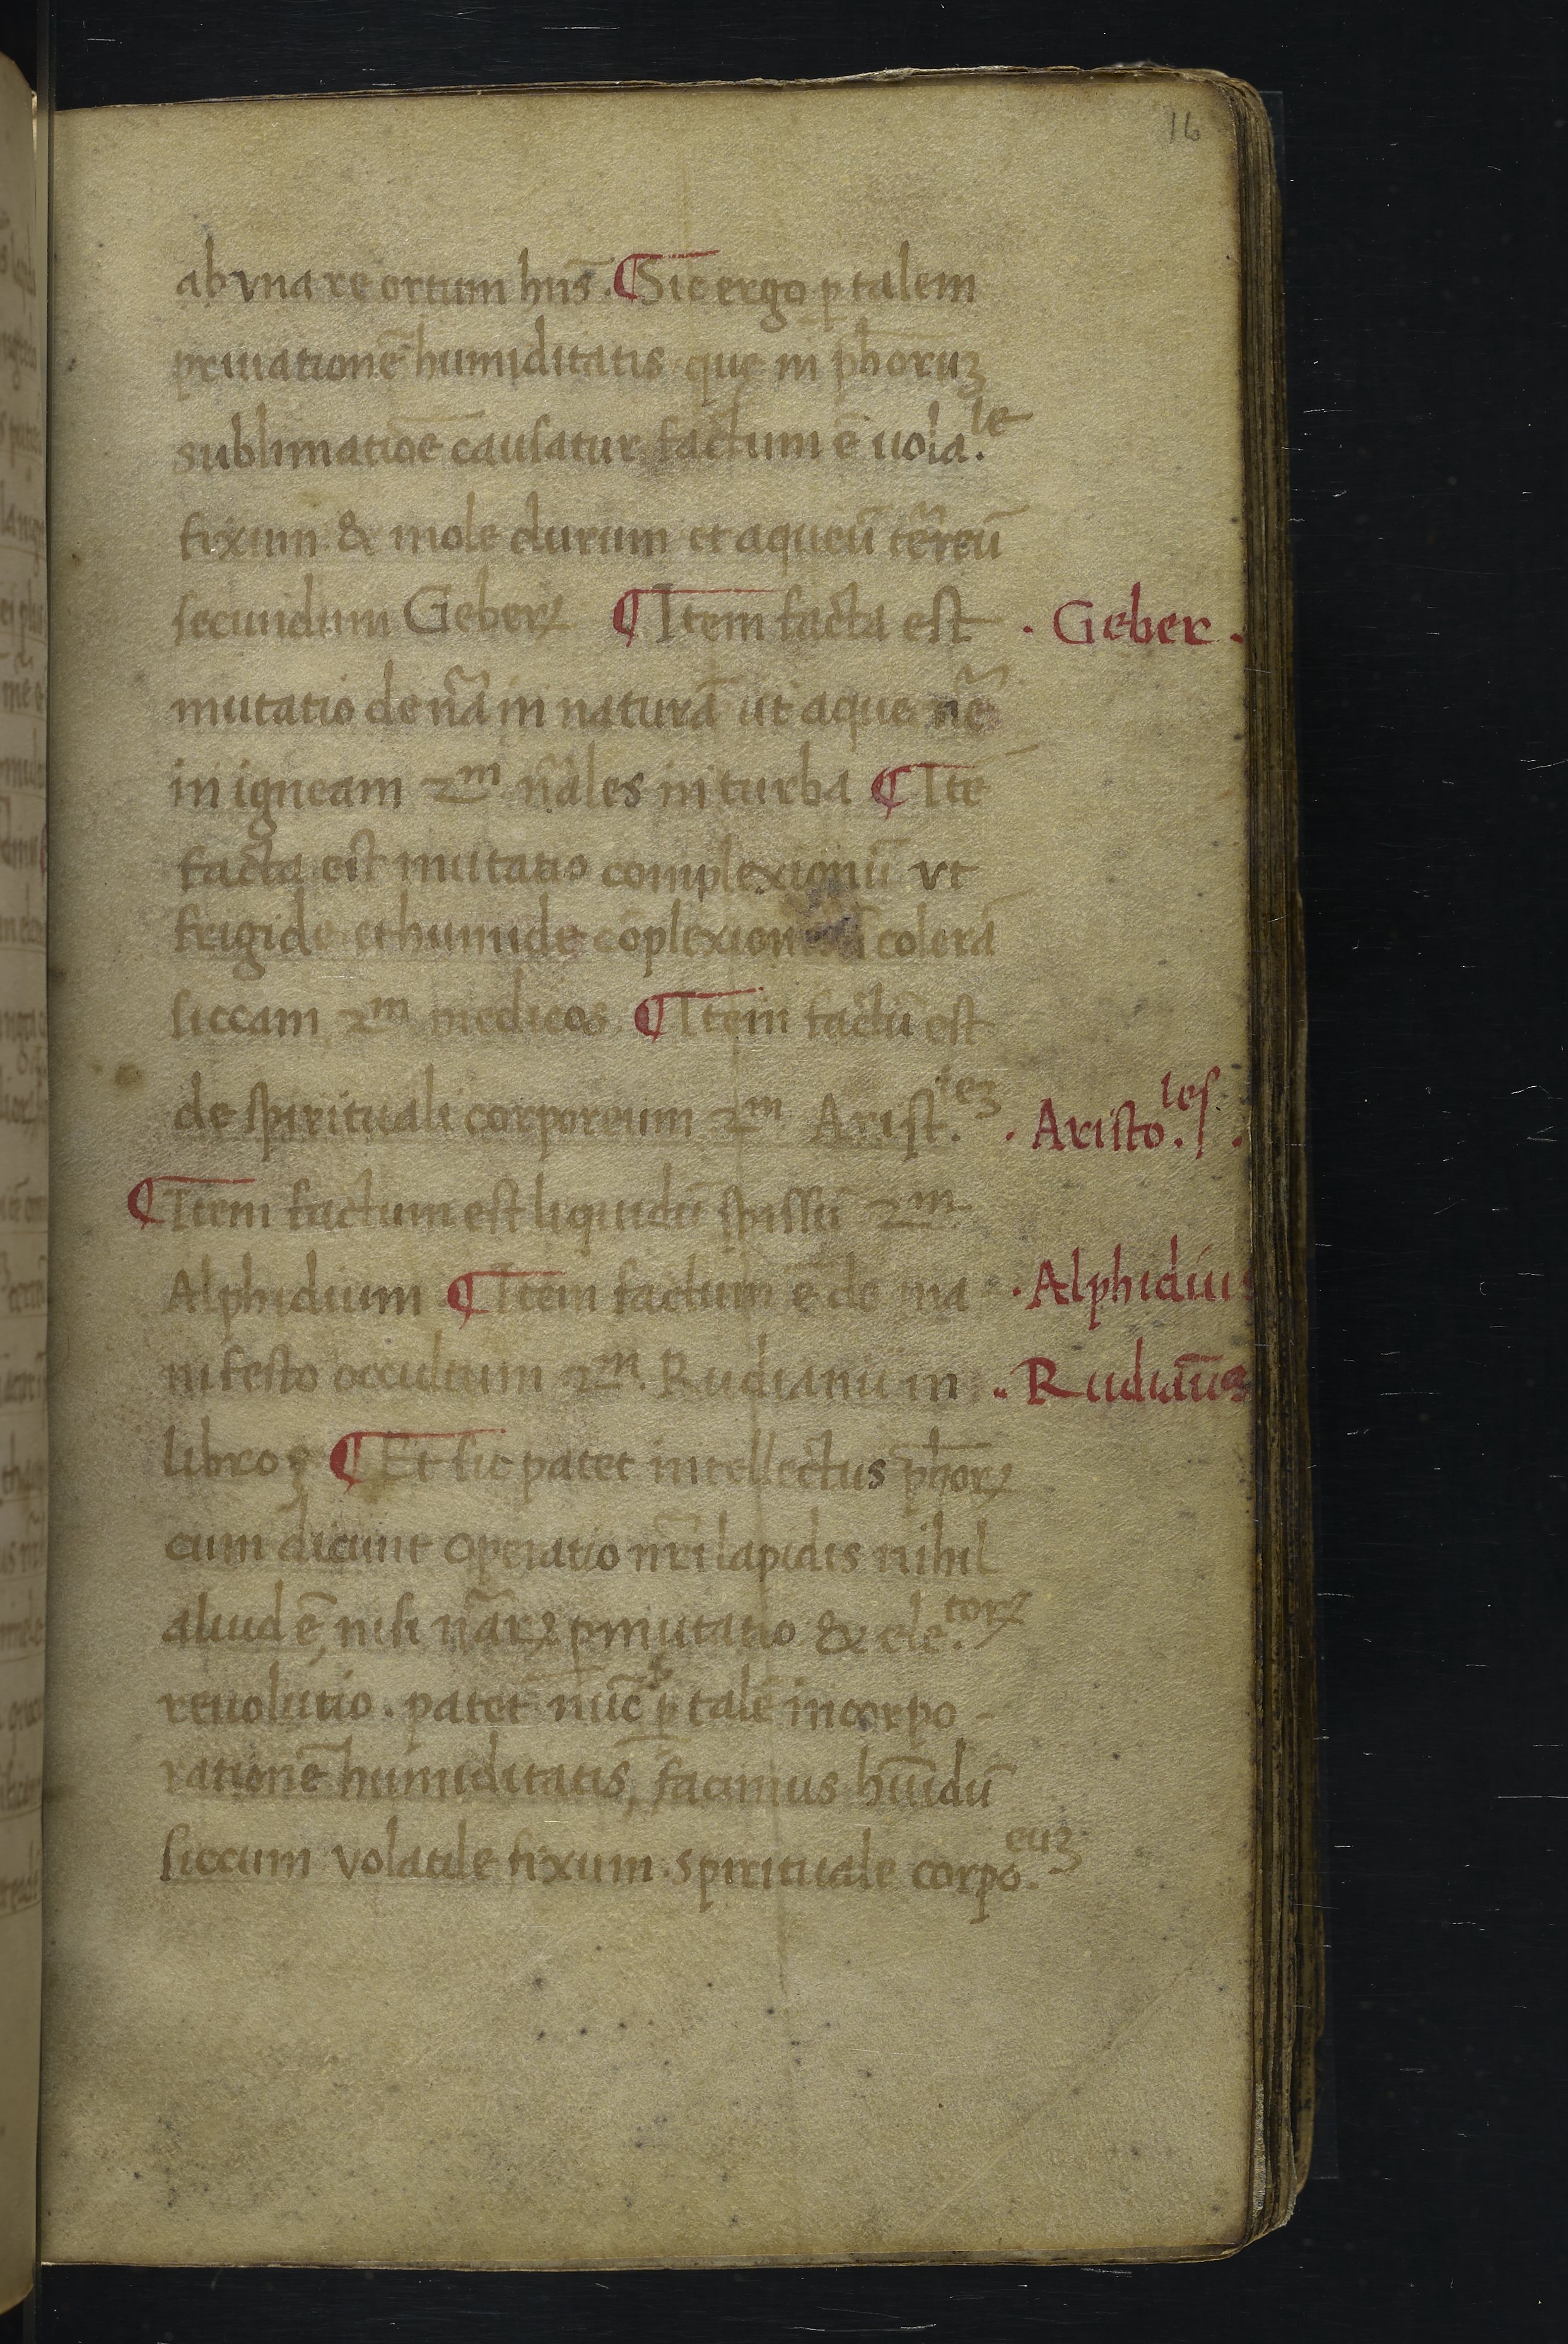 16
ab vna re ortum hñs. ¶ Sic ergo ꝑ talem
priuationē humiditatis que in pħorūꝫ
sublimatiōe causatur factum ē uola.le
fixum & mole durum et aqueū tēreū
secundum Geberꝝ ¶ Item facta est · Geber ·
mutatio de nr̃a in naturā ut aque nē
in igneam 2m nāles in turba ¶ Itē
facta est mutatio complexionū vt
frigide et humide cōplexion colerā
siccam 2m medicos ¶ Item factū est
de spirituali corporeum 2m Arist.teꝫ · Aristo.les ·
¶ Item factum est liquidū spissū 2m
Alphidium ¶ Item factum ē de ma · Alphidius
nifesto occultum 2m. Rudianū in · Rudiāus
libro 3 ¶ Et sic patet intellectus pħorꝝ
cum dicunt operatio nr̃i lapidis nihil
aliud ē, nisi nāꝝ ꝑmutatio & ele.torꝝ
reuolutio . patet nūc ꝙ ꝑ talē incorpo -
rationē humiditatis, facimus hūidū
siccum volatile fixum . spirituale corpo.euꝫ